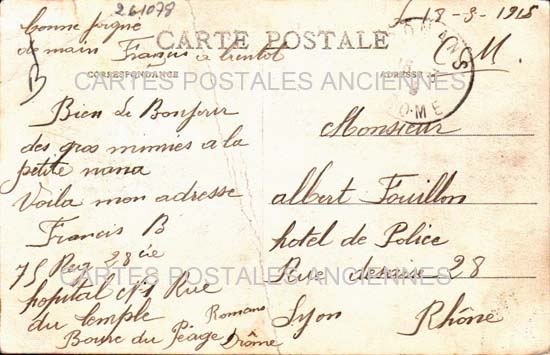 261078
Le 18-3-1915
bonne poigné
de main Francis a bientot
B
CARTE POSTALE
F. M.
CORRESPONDANCE
ADRESSE
ROMANS
DROME
CARTES POSTALES ANCIENNES
Bien le Bonjour
des gros mimies a la
petite nana
Voila mon adresse
Francis B
75 Reg 28 cie
hopital N°1 Rue
du temple
Bourc du Péage Romans
Drôme
Monsieur
albert Fouillon
hotel de Police
Rue 28
Lyon Rhône
CARTES POSTALES ANCIENNES
CARTES POSTALES ANCIENNES